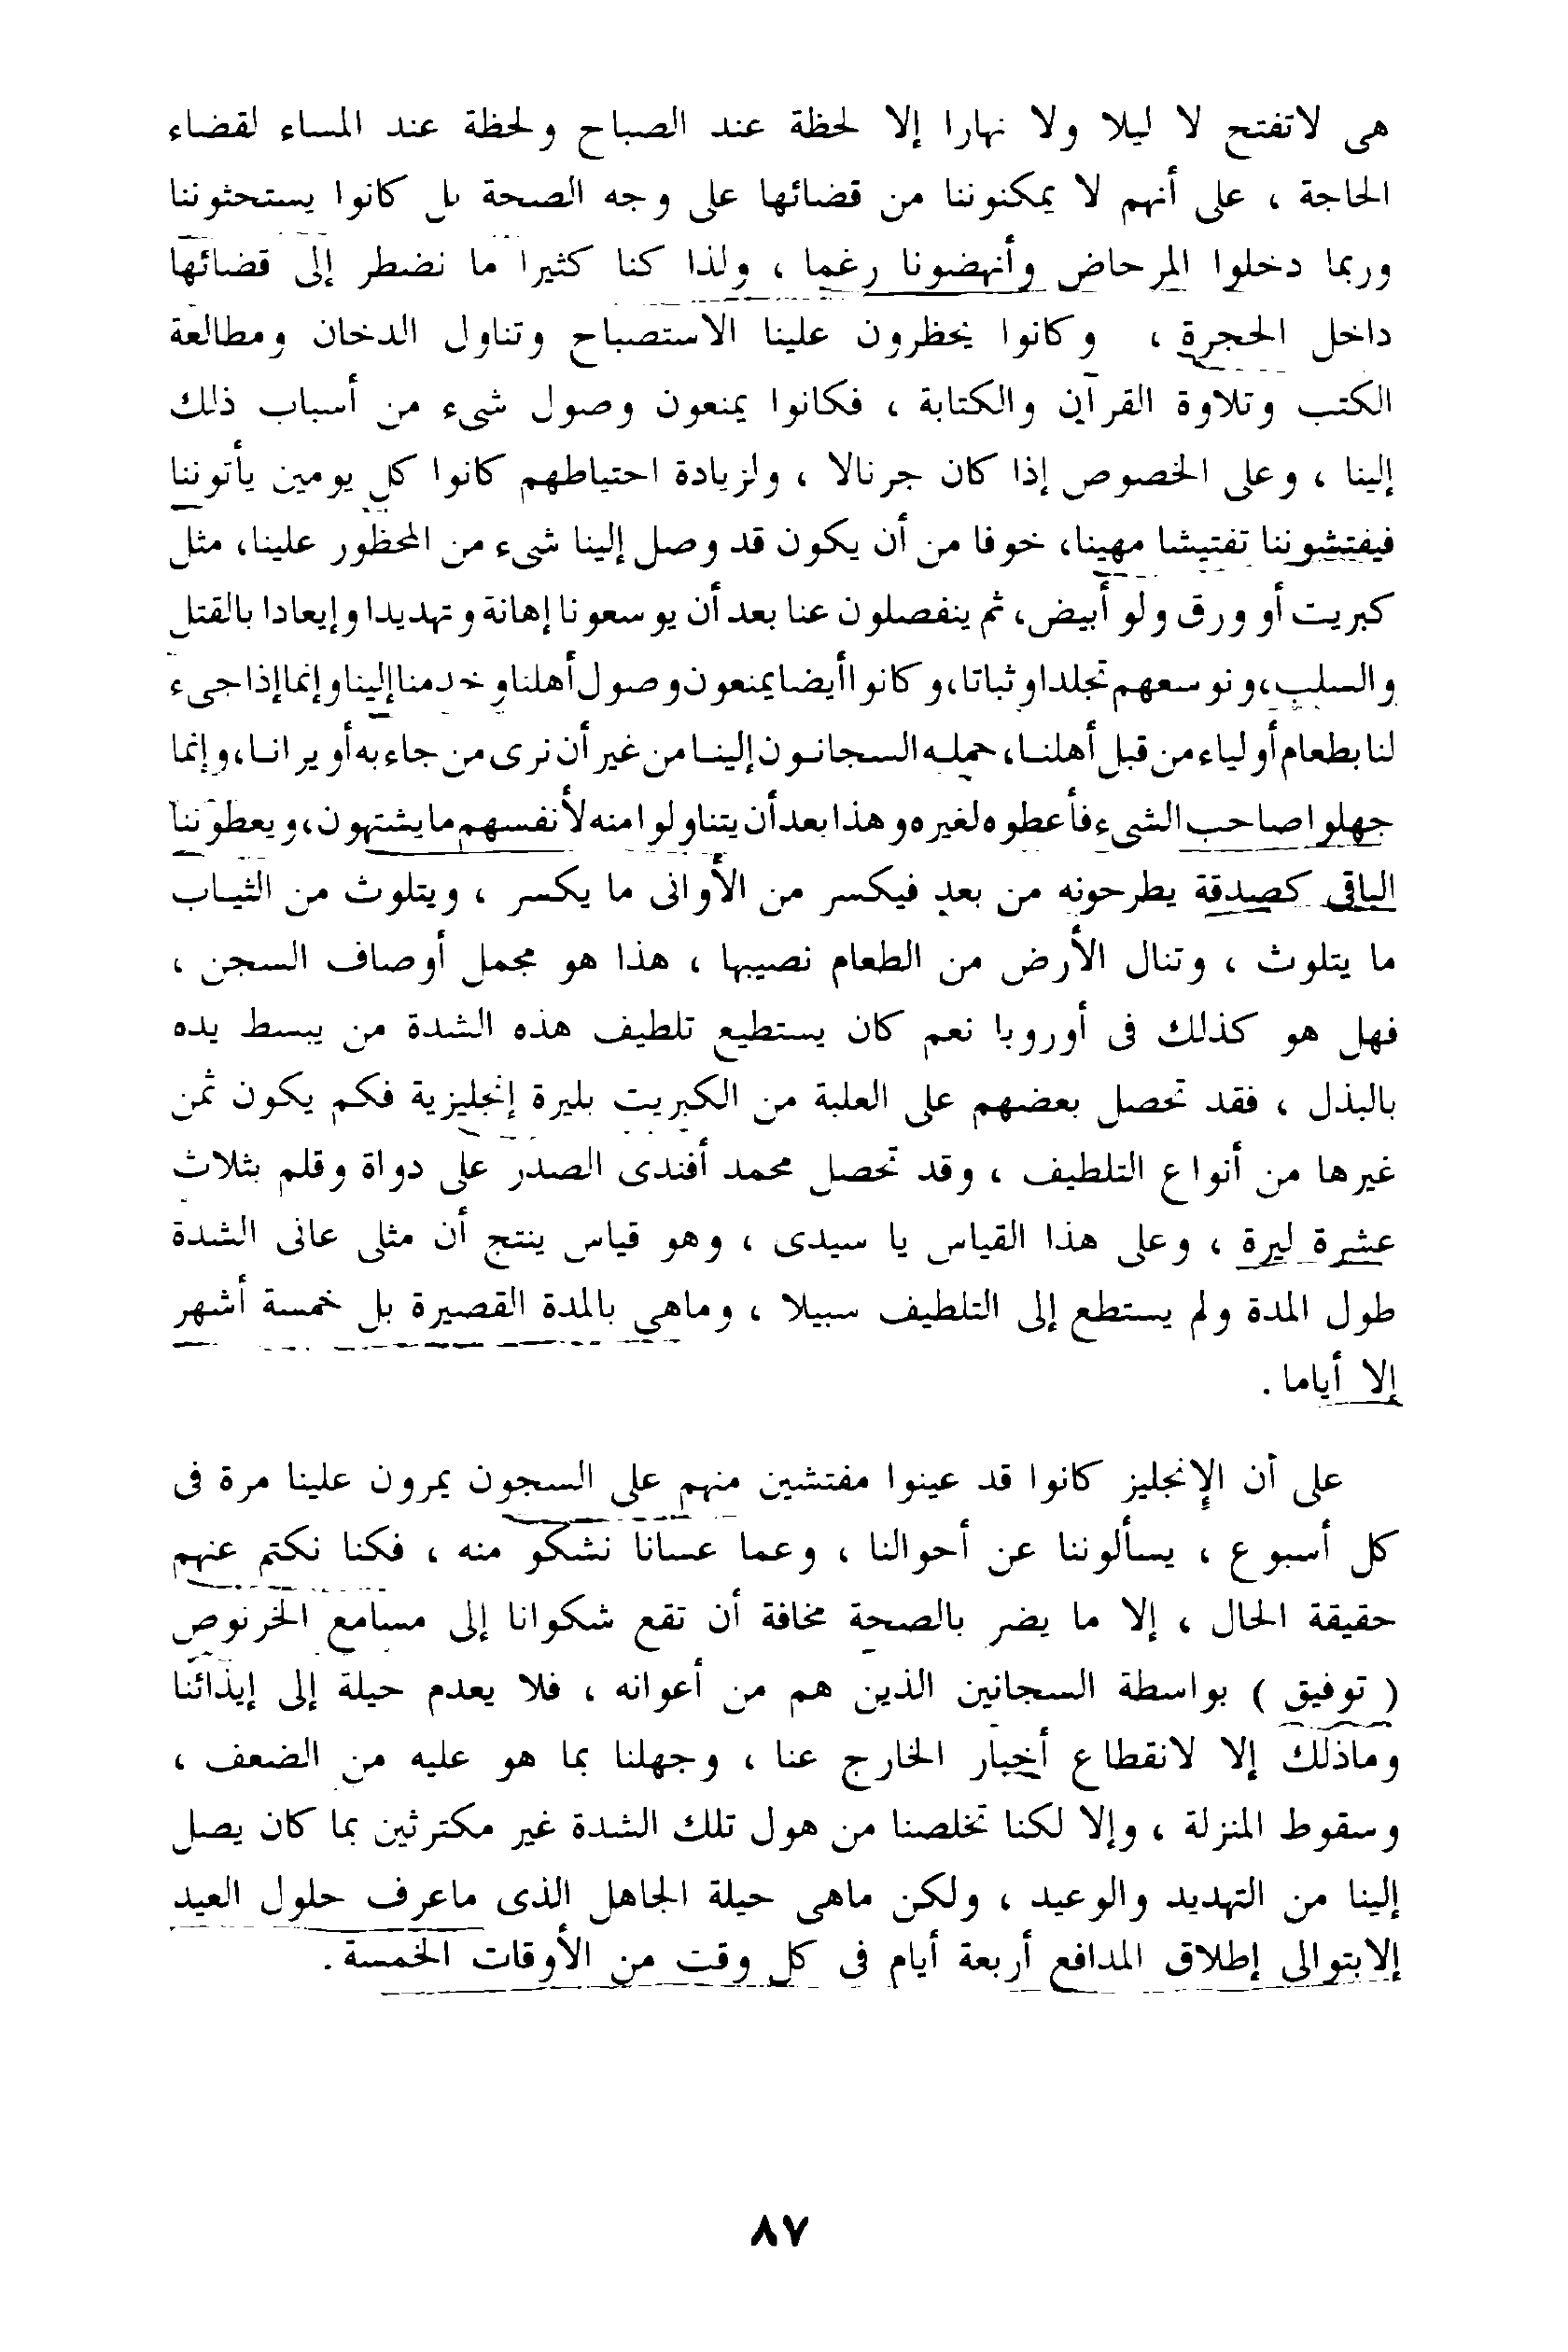 هى لاتفتح لا ليلا ولا نهارا إلا لحظة عند الصباح ولحظة عند المساء لقضاء
الحاجة ، على أنهم لا يمكنوننا من قضائها على وجه الصحة بل كانوا يستحثوننا
وربما دخلوا المرحاض وأنهضونا رغما ، ولذا كنا كثيرا ما نضطر إلى قضائها
داخل الحجرة ، وكانوا يحظرون علينا الاستصباح وتناول الدخان ومطالعة
الكتب وتلاوة القرآن والكتابة ، فكانوا يمنعون وصول شىء من أسباب ذلك
إلينا ، وعلى الخصوص إذا كان جرنالا ، ولزيادة احتياطهم كانوا كل يومين يأتوننا
فيفتشوننا تفتيشا مهينا، خوفا من أن يكون قد وصل إلينا شىء من المحظور علينا، مثل
كبريت أو ورق ولو أبيض، ثم ينفصلون عنا بعد أن يوسعونا إهانة وتهديدا وإيعادا بالقتل
والسلب، ونوسعهم تجلدا وثباتا، وكانوا أيضا يمنعون وصول أهلنا وخدمنا إلينا وإنما إذا جىء
لنا بطعام أو لباء من قبل أهلنا، حمله السجانون إلينا من غير أن نرى من جاء به أو يرانا، وإنما
جهلوا صاحب الشىء فأعطوه لغيره وهذا بعد أن يتناولوا منه لأنفسهم ما يشتهون، ويعطوننا
الباقى كصدقة يطرحونه من بعد فيكسر من الأوانى ما يكسر ، ويتلوث من الثياب
ما يتلوث ، وتنال الأرض من الطعام نصيبها ، هذا هو مجمل أوصاف السجن ،
فهل هو كذلك فى أوروبا نعم كان يستطيع تلطيف هذه الشدة من يبسط يده
بالبذل ، فقد تحصل بعضهم على العلبة من الكبريت بليرة إنجليزية فكم يكون ثمن
غيرها من أنواع التلطيف ، وقد تحصل محمد أفندى الصدر على دواة وقلم بثلاث
عشرة ليرة ، وعلى هذا القياس يا سيدى ، وهو قياس ينتج أن مثلى عانى الشدة
طول المدة ولم يستطع إلى التلطيف سبيلا ، وماهى بالمدة القصيرة بل خمسة أشهر
إلا أياما .
على أن الإنجليز كانوا قد عينوا مفتشين منهم على السجون يمرون علينا مرة فى
كل أسبوع ، يسألوننا عن أحوالنا ، وعما عسانا نشكو منه ، فكنا نكتم عنهم
حقيقة الحال ، إلا ما يضر بالصحة مخافة أن تقع شكوانا إلى مسامع الخرنوص
( توفيق ) بواسطة السجانين الذين هم من أعوانه ، فلا يعدم حيلة إلى إيذائنا
وماذلك إلا لانقطاع أخبار الخارج عنا ، وجهلنا بما هو عليه من الضعف ،
وسقوط المنزلة ، وإلا لكنا تخلصنا من هول تلك الشدة غير مكترثين بما كان يصل
إلينا من التهديد والوعيد ، ولكن ماهى حيلة الجاهل الذى ماعرف حلول العيد
إلابتوالى إطلاق المدافع أربعة أيام فى كل وقت من الأوقات الخمسة .
٨٧